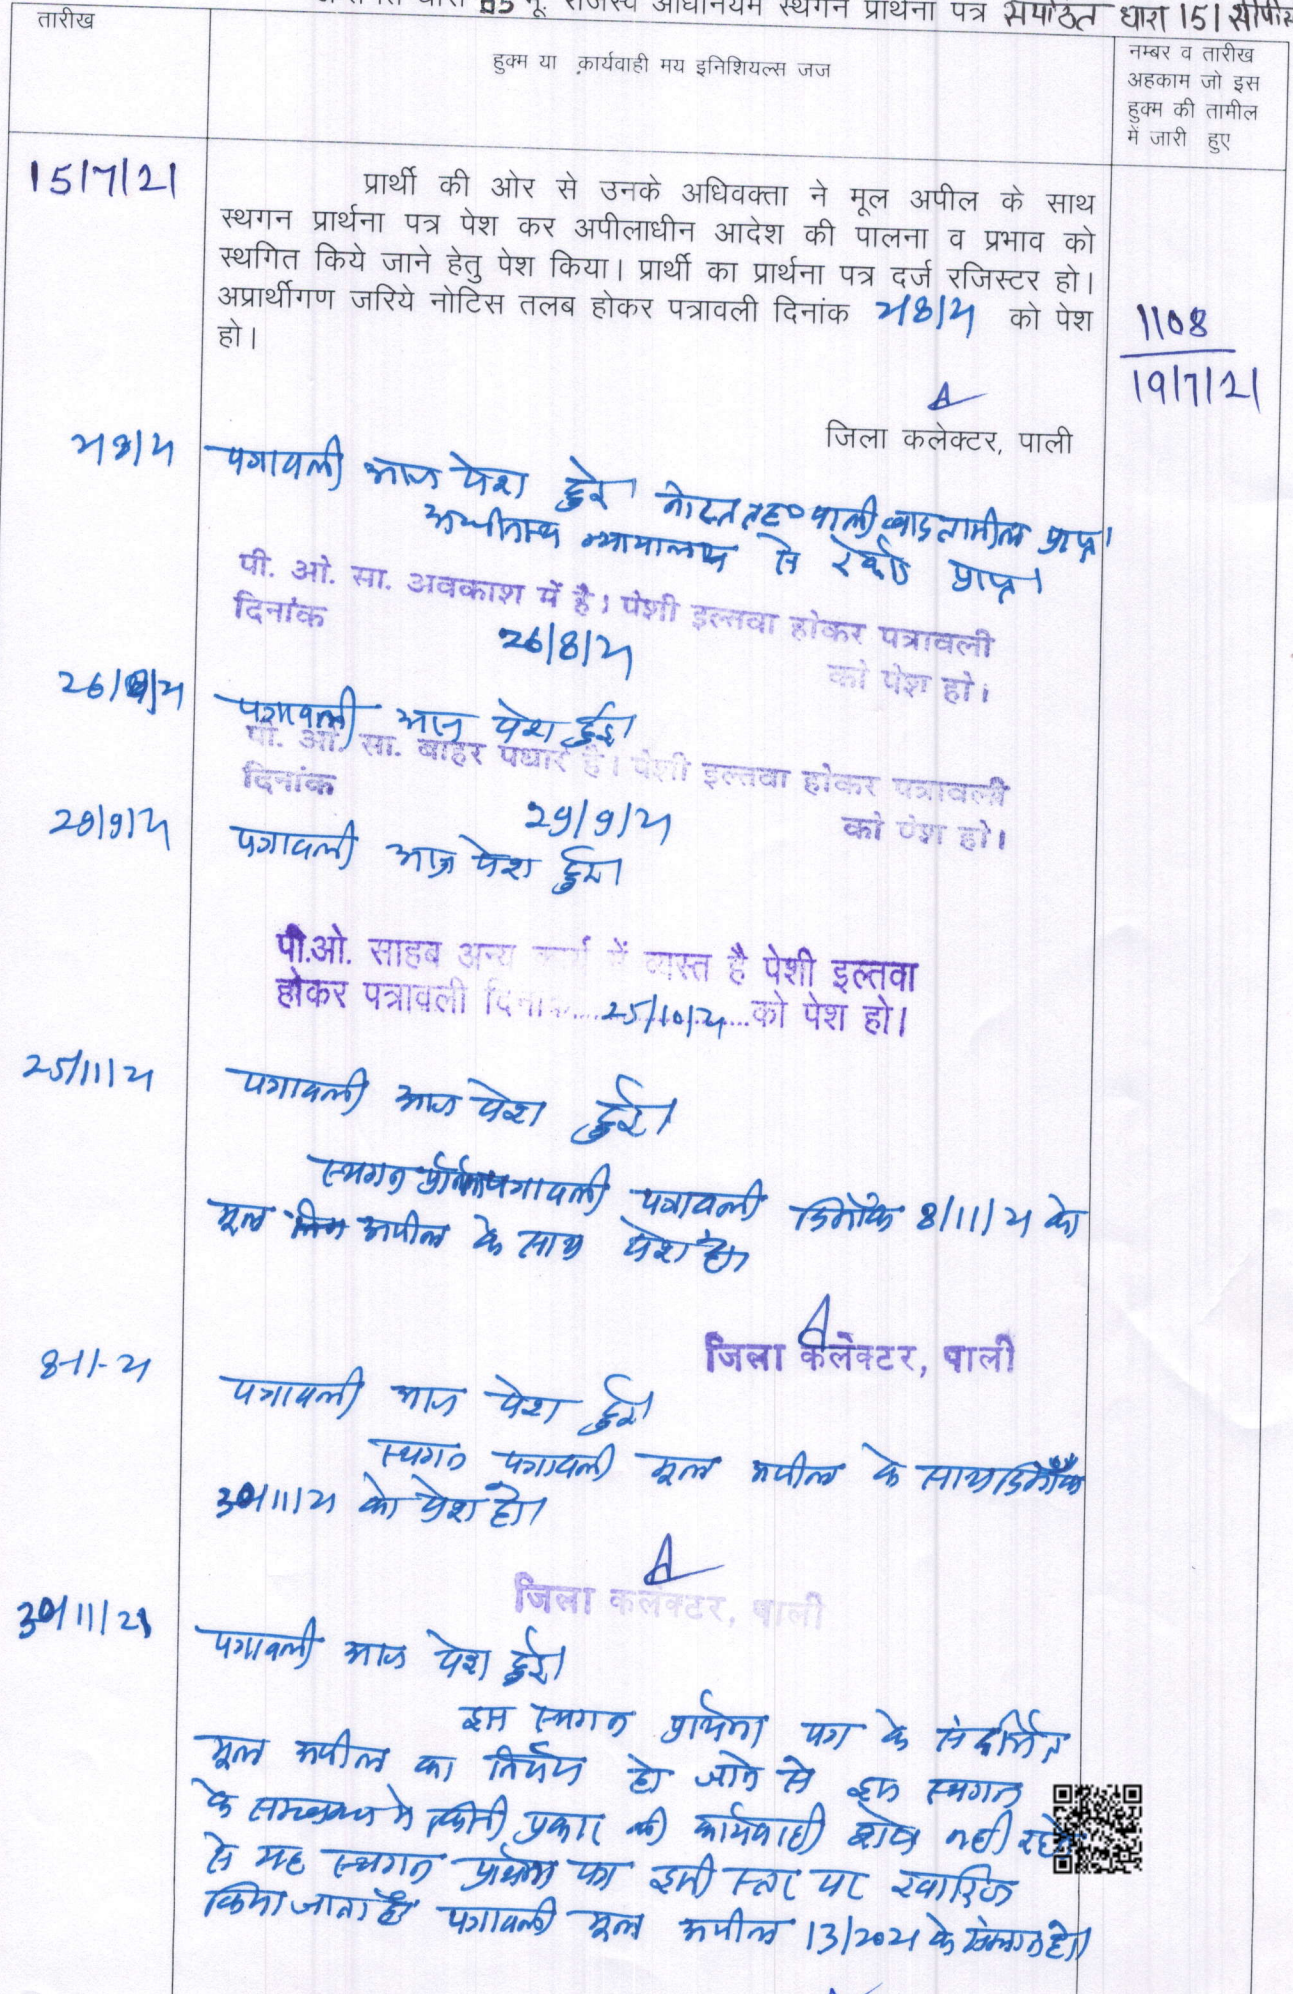 धारा 85 भू. राजस्व अधिनियम स्थगन प्रार्थना पत्र सपठित धारा 151 सीपीस
तारीख
हुक्म या कार्यवाही मय इनिशियल्स जज
नम्बर व तारीख
अहकाम जो इस
हुक्म की तामील
में जारी हुए
15/7/21
प्रार्थी की ओर से उनके अधिवक्ता ने मूल अपील के साथ
स्थगन प्रार्थना पत्र पेश कर अपीलाधीन आदेश की पालना व प्रभाव को
स्थगित किये जाने हेतु पेश किया। प्रार्थी का प्रार्थना पत्र दर्ज रजिस्टर हो।
अप्रार्थीगण जरिये नोटिस तलब होकर पत्रावली दिनांक 2/8/21 को पेश
हो।
1108
19/7/21
जिला कलेक्टर, पाली
2/8/21 पत्रावली आज पेश हुई। नोटिस तह० पाली बाद तामील प्राप्त।
अधीनस्थ न्यायालय से रेकॉर्ड प्राप्त।
पी. ओ. सा. अवकाश में है। पेशी इल्तवा होकर पत्रावली
दिनांक 26/8/21 को पेश हो।
26/8/21 पत्रावली आज पेश हुई।
पी. ओ. सा. बाहर पधारे है। पेशी इल्तवा होकर पत्रावली
दिनांक 29/9/21 को पेश हो।
29/9/21 पत्रावली आज पेश हुई।
पी.ओ. साहब अन्य कार्य में व्यस्त है पेशी इल्तवा
होकर पत्रावली दिनांक 25/10/21 को पेश हो।
25/11/21 पत्रावली आज पेश हुई।
स्थगन पत्रावली दिनांक 8/11/21 को
मूल अपील के साथ पेश हो।
जिला कलेक्टर, पाली
8-11-21 पत्रावली आज पेश हुई।
स्थगन पत्रावली मूल अपील के साथ दिनाँक
30/11/21 को पेश हो।
जिला कलेक्टर, पाली
30/11/21 पत्रावली आज पेश हुई।
इस स्थगन प्रार्थना पत्र के संदर्भित
मूल अपील का निर्णय हो जाने से इस स्थगन
के सम्बन्ध मे किसी प्रकार की कार्यवाही शेष नही रहने
से यह स्थगन प्रार्थना पत्र इसी स्तर पर खारिज
किया जाता है। पत्रावली मूल अपील 13/2021 के संलग्न हो।